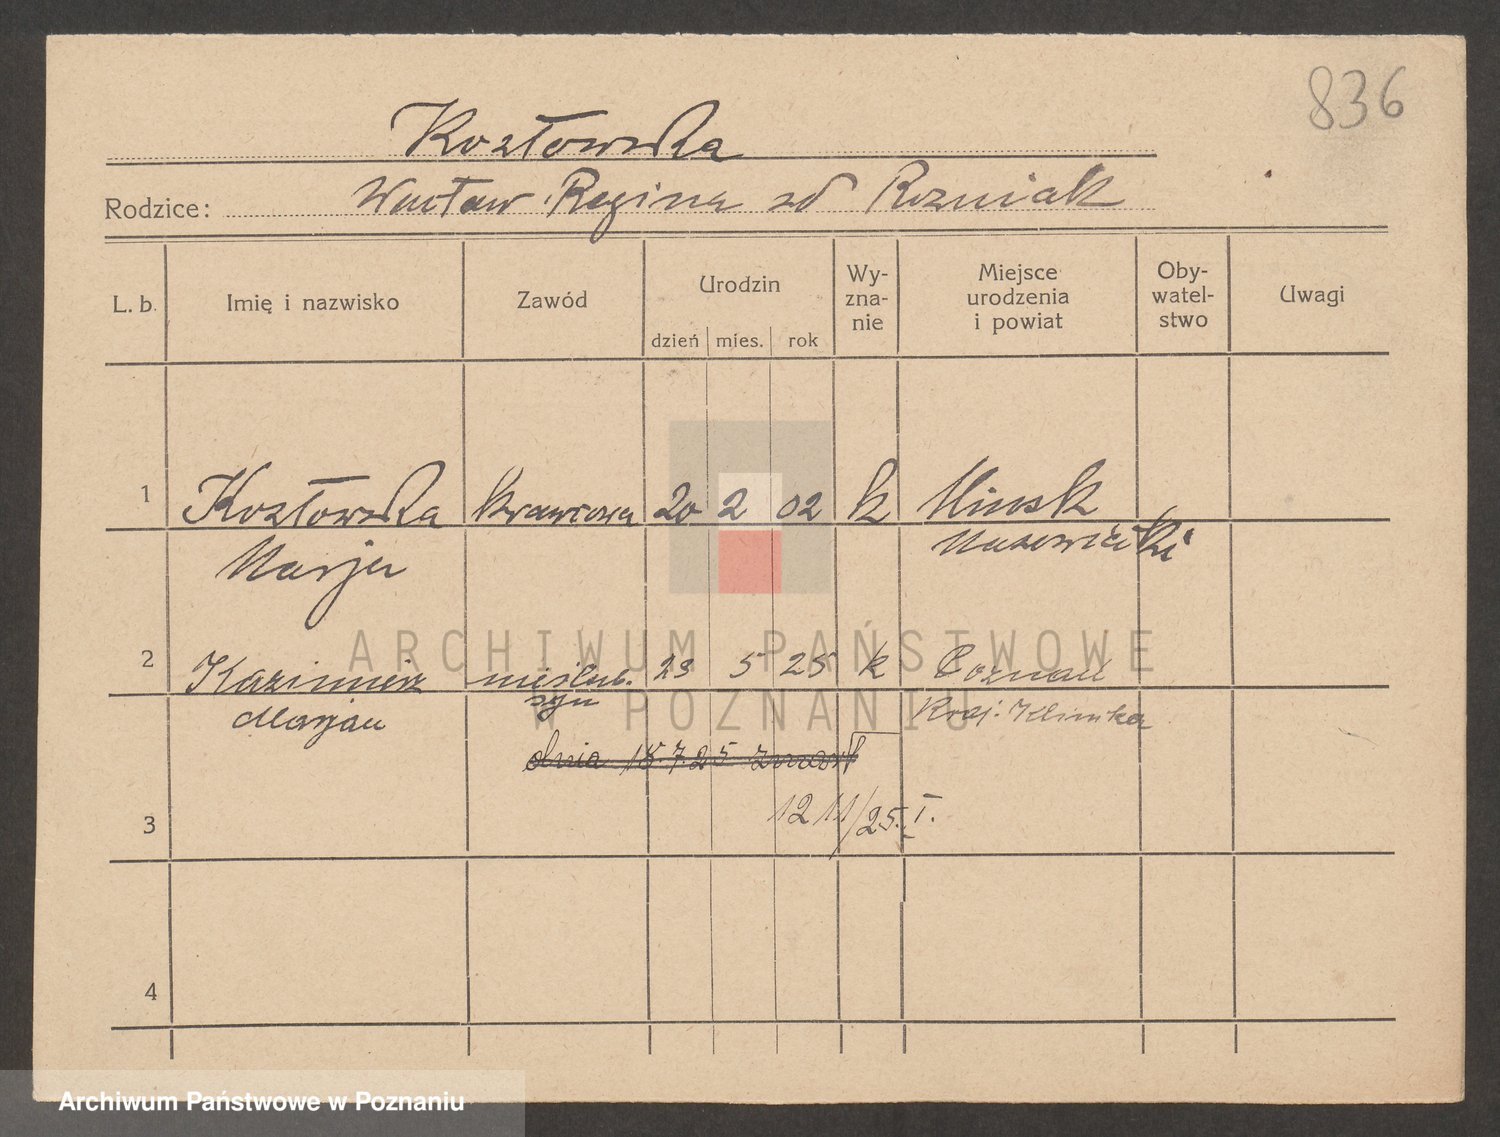 836
Kozłowska
Rodzice: Wacław Regina zd Rozniak
L. b. Imię i nazwisko Zawód Urodzin dzień mies. rok Wy-zna-nie Miejsce urodzenia i powiat Oby-watel-stwo Uwagi
1 Kozłowska krawcowa 20 2 02 k Minsk
Marja Mazowiecki
2 Kazimierz nieślub. 23 5 25 k Poznań
Marjan syn
dnia 18.7.25 zmarł
12 11/25. I.
3
4
ARCHIWUM PAŃSTWOWE
W POZNANIU
Archiwum Państwowe w Poznaniu